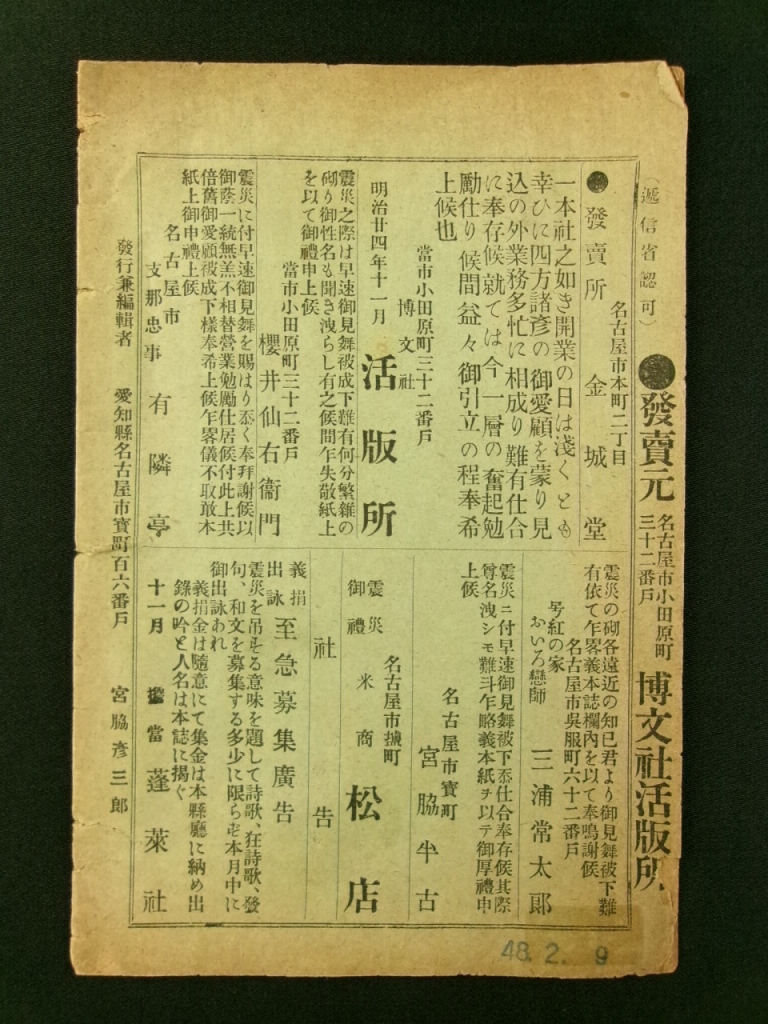 （遞信省認可）
●發賣元
名古屋市小田原町
三十二番戶
博文社活版所
●發賣所
名古屋市本町二丁目
金城堂
一本社之如き開業の日は淺くとも
幸ひに四方諸彥の御愛顧を蒙り見
込の外業務多忙に相成り難有仕合
に奉存候就ては今一層の奮起勉
勵仕り候間益々御引立の程奉希
上候也
當市小田原町三十二番戶
博文社
明治廿四年十一月
活版所
震災之際は早速御見舞被成下難有何分繁雜の
砌り御性名も聞き洩らし有之候間乍失敬紙上
を以て御禮申上候
當市小田原町三十二番戶
櫻井仙右衞門
震災に付早速御見舞を賜はり忝く奉拜謝候以
御蔭一統無恙不相替營業勉勵仕居候付此上共
倍舊御愛顧被成下樣奉希上候乍畧儀不取敢本
紙上御申禮上候
名古屋市
支那忠事
有隣亭
震災の砌各遠近の知已君より御見舞被下難
有依て乍畧義本誌欄內を以て奉鳴謝候
名古屋市吳服町六十二番戶
号紅の家
おいろ戀師
三浦常太郞
震災ニ付早速御見舞被下忝仕合奉存候其際
尊名洩シモ難斗乍略義本紙ヲ以テ御厚禮申
上候
名古屋市寳町
宮脇半古
震災
御禮
名古屋市擴町
米商
松店
社告
義捐
出詠
至急募集廣告
震災を吊せる意味を題して詩歌、狂詩歌、發
句、和文を募集する多少に限らず本月中に
御出詠あれ
義捐金は隨意にて集金は本縣廳に納め出
錄の吟と人名は本誌に揭ぐ
十一月
擔當
蓬萊社
發行兼編輯者
愛知縣名古屋市寳町百六番戶
宮脇彥三郎
48. 2. 9